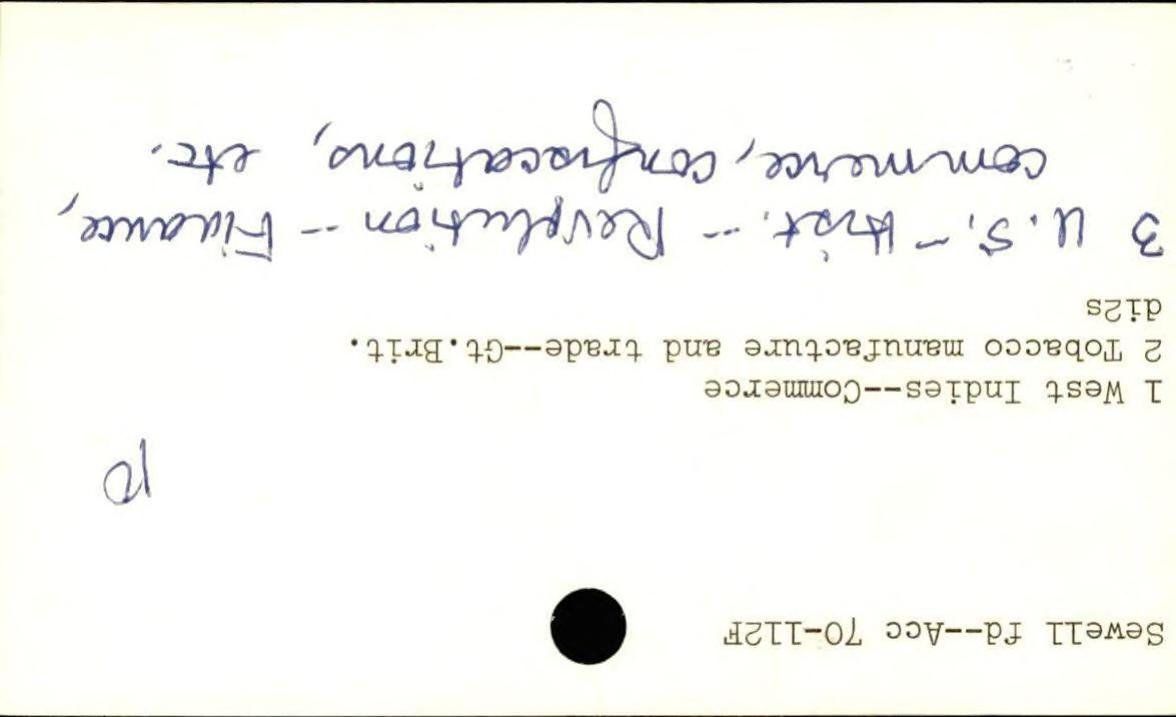 Sewell fd--Acc 70-112F
p
1 West Indies--Commerce
2 Tobacco manufacture and trade--Gt.Brit.
di2s
3 U.S. - Hist. -- Revolution -- Finance,
commerce, confiscations, etc.